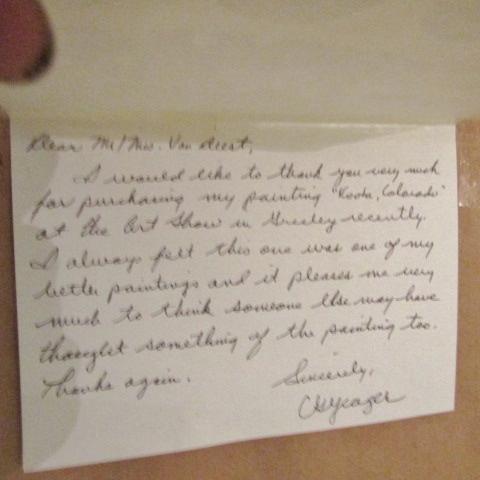 Dear Mr/Mrs. Van Deest,
I would like to thank you very much
for purchasing my painting "Koda, Colorado"
at the Art Show in Greeley recently.
I always felt this one was one of my
better paintings and it pleases me very
much to think someone else may have
thought something of the painting too.
Thanks again.
Sincerely,
Yeager